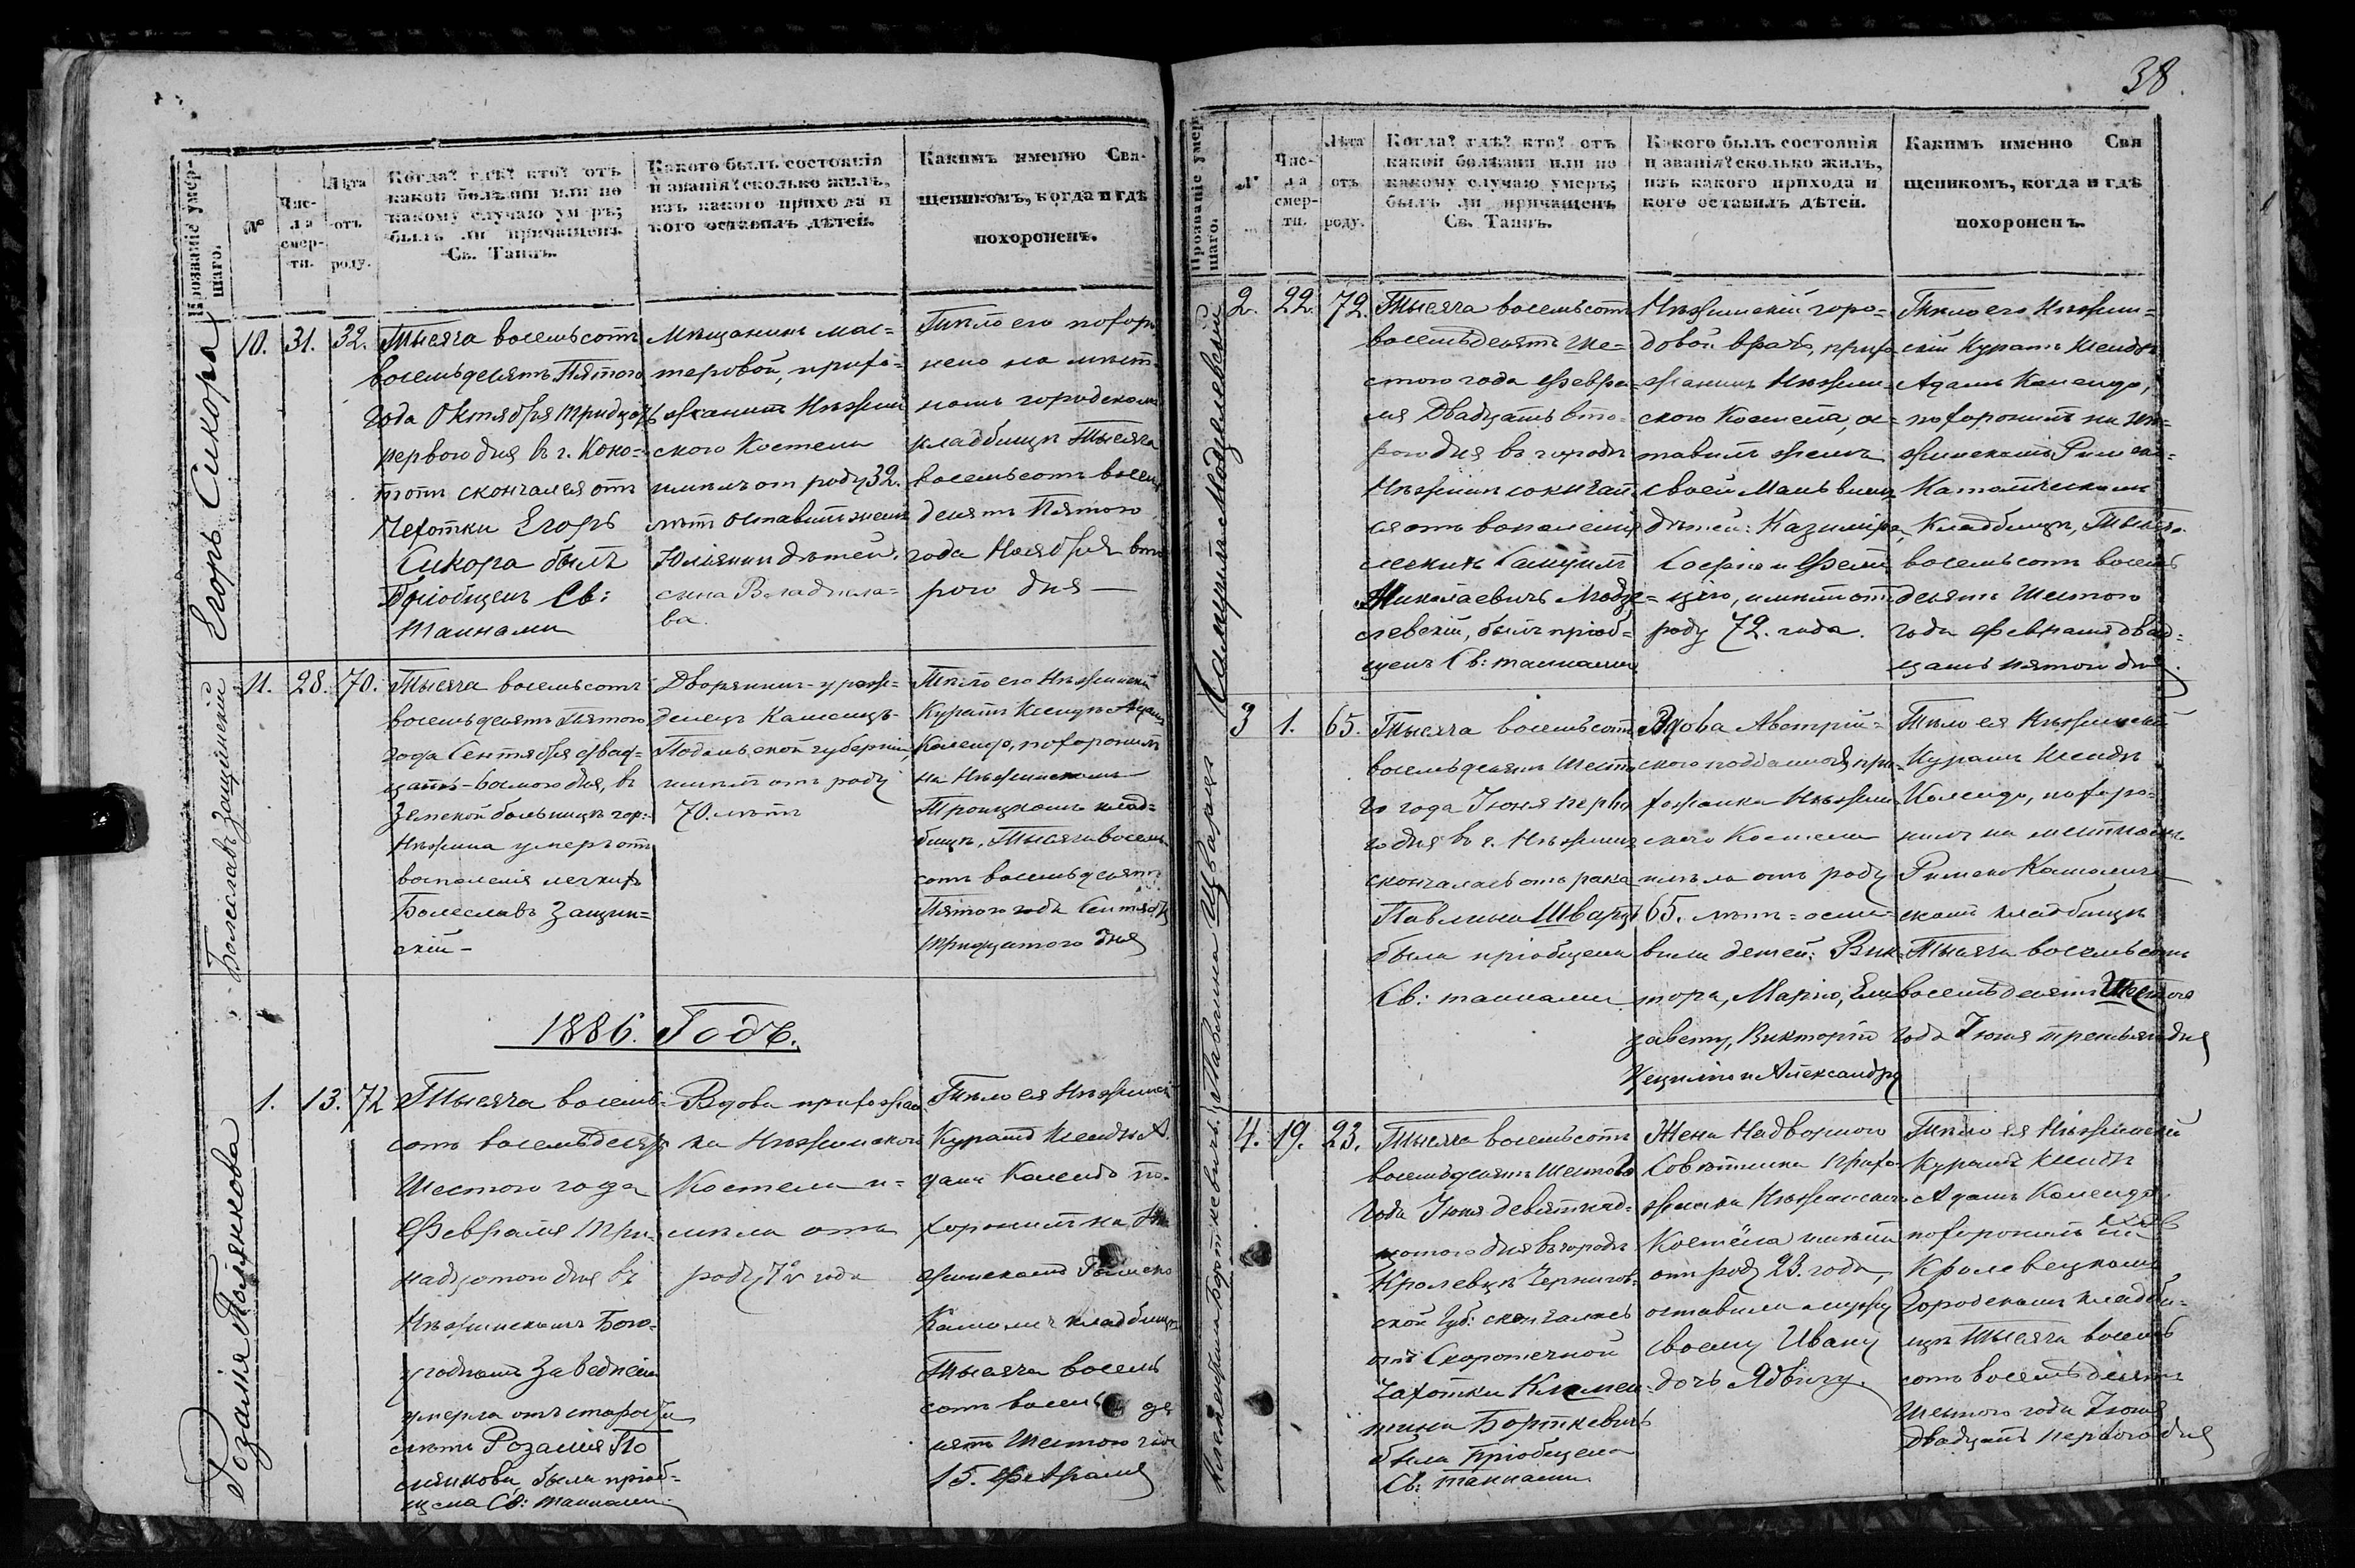 38.
Прозваніе умер-
шаго.
№
Чис-
ла
смер-
ти.
Лѣта
отъ
роду.
Когда? гдѣ? кто? отъ
какой болѣзни или по
какому случаю умеръ;
былъ ли причащенъ
Св. Таинъ.
Какого былъ состоянія
и званія? сколько жилъ,
изъ какого прихода и
кого оставилъ дѣтей.
Какимъ именно Свя-
щенникомъ, когда и гдѣ
похороненъ.
Егоръ Сикора
10. 31. 32.
Тысяча восемьсотъ
восемьдесятъ Пятого
года Октября тридцать
первого дня въ г. Коно-
топѣ скончался отъ
Чехотки Егоръ
Сикора былъ
Пріобщенъ Св:
Таинами
Мѣщанинъ мас-
теровой, прихо-
жанинъ Нѣжин
ского Костела
имѣлъ отъ роду 32.
лѣтъ оставилъ жену
Юліянну дѣтей,
сына Владисла-
ва.
Тѣло его похоро
нено на мѣст
номъ городскомъ
кладбищѣ Тысяча
восемьсотъ восемь
десятъ Пятого
года Ноября вто
рого дня —
Болеславъ Защинскій
11. 28. 70.
Тысяча восемьсотъ
восемьдесятъ Пятого
года Сентября двад=
цать-восмого дня, въ
Земской больницѣ гор:
Нѣжина умеръ отъ
воспаленія легкихъ
Болеславъ Защин=
скій —
Дворянинъ-уроже=
денецъ Каменецъ-
Подольской губерніи,
имѣлъ отъ роду
70. лѣтъ
Тѣло его Нѣжинскій
Куратъ Ксендзъ Адамъ
Колендо, похоронилъ
на Нѣжинскомъ
Троицкомъ клад=
бищѣ, Тысяча восемь
сотъ восемьдесятъ
Пятого года Сентября
тридцатого дня
1886. Годъ.
Розалія Полянкова
1. 13. 72
Тысяча восемь-
сотъ восемьдесятъ
Шестого года
Февраля три-
надцатого дня въ
Нѣжинскомъ Бого-
угодномъ Заведеніи
умерла отъ старости
лѣтъ Розалія По
лянкова, была пріоб-
щена Св: таинами.
Вдова прихожан
ка Нѣжинского
Костела и-
мѣла отъ
роду 72 года
Тѣло ея Нѣжинскій
Куратъ Ксендзъ А
дамъ Колендо по-
хоронилъ на Нѣ
жинскомъ Римско
Католич кладбищѣ
Тысяча восемь
сотъ восемь де
сятъ Шестого года
15. Февраля
Прозваніе умер
шаго.
№
Чис-
ла
смер-
ти.
Лѣта
отъ
роду.
Когда? гдѣ? кто? отъ
какой болѣзни или по
какому случаю умеръ;
былъ ли причащенъ
Св. Таинъ.
Какого былъ состоянія
и званія? сколько жилъ,
изъ какого прихода и
кого оставилъ дѣтей.
Какимъ именно Свя
щеникомъ, когда и гдѣ
похороненъ.
Самуилъ Модзелевскій
2. 22. 72.
Тысяча восемьсотъ
восемьдесятъ Ше-
стого года Февра
ля Двадцать вто
рого дня въ городѣ
Нѣжинѣ скончал
ся отъ воспаленія
легкихъ Самуилъ
Николаевичъ Модзе-
левскій, былъ пріоб-
щенъ Св: таинами
Нѣжинскій горо-
довой врачъ, прихо
жанинъ Нѣжин
ского Костела, ос-
тавилъ жену
дѣтей: Казиміра,
Софію и Фели
цію, имѣлъ отъ
роду 72. года.
Тѣло его Нѣжин-
скій Куратъ Ксендзъ
Адамъ Колендо,
похоронилъ на Нѣ-
жинскомъ Римско-
Католическомъ
Кладбищѣ, Тысяча
восемьсотъ восемь
десятъ Шестого
года Февраля двад-
цать пятого дня.
Павлина Шварцъ
3 1. 65.
Тысяча восемьсотъ
восемьдесятъ Шесто
го года Іюня перво
го дня въ г. Нѣжинѣ
скончалась отъ рака
Павлина Шварцъ
была пріобщена
Св: таинами
Вдова Австрій-
ского подданного, при-
хожанка Нѣжин
ского Костела
имѣла отъ роду
65. лѣтъ-оста-
вила детей: Вик-
тора, Марію, Ели
завету, Викторію
Цецилію и Александру
Тѣло ея Нѣжинскій
Куратъ Ксендзъ
Колендо, похоро-
нилъ на местномъ
Римско Католиче
скомъ кладбищѣ
Тысяча восемьсотъ
восемьдесятъ Шестого
года Іюня третьяго дня
Клементина Борткевичъ
4. 19. 23.
Тысяча восемьсотъ
восемьдесятъ Шестого
года Іюня девятнад-
цатого дня въ городѣ
Кролевцѣ Чернигов-
ской Губ: скончалась
отъ Скоротечной
Чахотки Клемен-
тина Борткевичъ
была пріобщена
Св: таинами.
Жена Надворного
Совѣтника прихо
жанка Нѣжинского
Костёла имѣла
отъ роду 23. года,
оставила мужу
своему Ивану
дочь Ядвигу.
Тѣло ея Нѣжинскій
Куратъ Ксендзъ
Адамъ Колендо,
похоронилъ на
Кролевецкомъ
Городскомъ кладби-
щѣ Тысяча восемь
сотъ восемьдесятъ
Шестого года Іюня
Двадцать первого дня